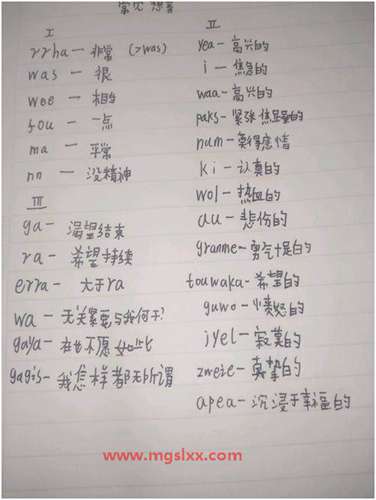 常见
I
rrha — 非常 (>was)
was — 很
wee — 相当
fou — 一点
ma — 平常
nn — 没精神
III
ga — 渴望结束
ra — 希望持续
erra — 大于ra
wa — 无关紧要与我何干?
gaya — 不愿如此
gagis — 我怎样都无所谓
II
yea — 高兴的
i — 焦急的
waa — 高兴的
paks — 紧张焦虑的
num — 莫得感情
ki — 认真的
wol — 热血的
au — 悲伤的
granme — 勇气十足的
touwaka — 希望的
guwo — 愤怒的
iyel — 寂寞的
zweie — 真挚的
apea — 沉浸于幸福的
www.mgslxx.com